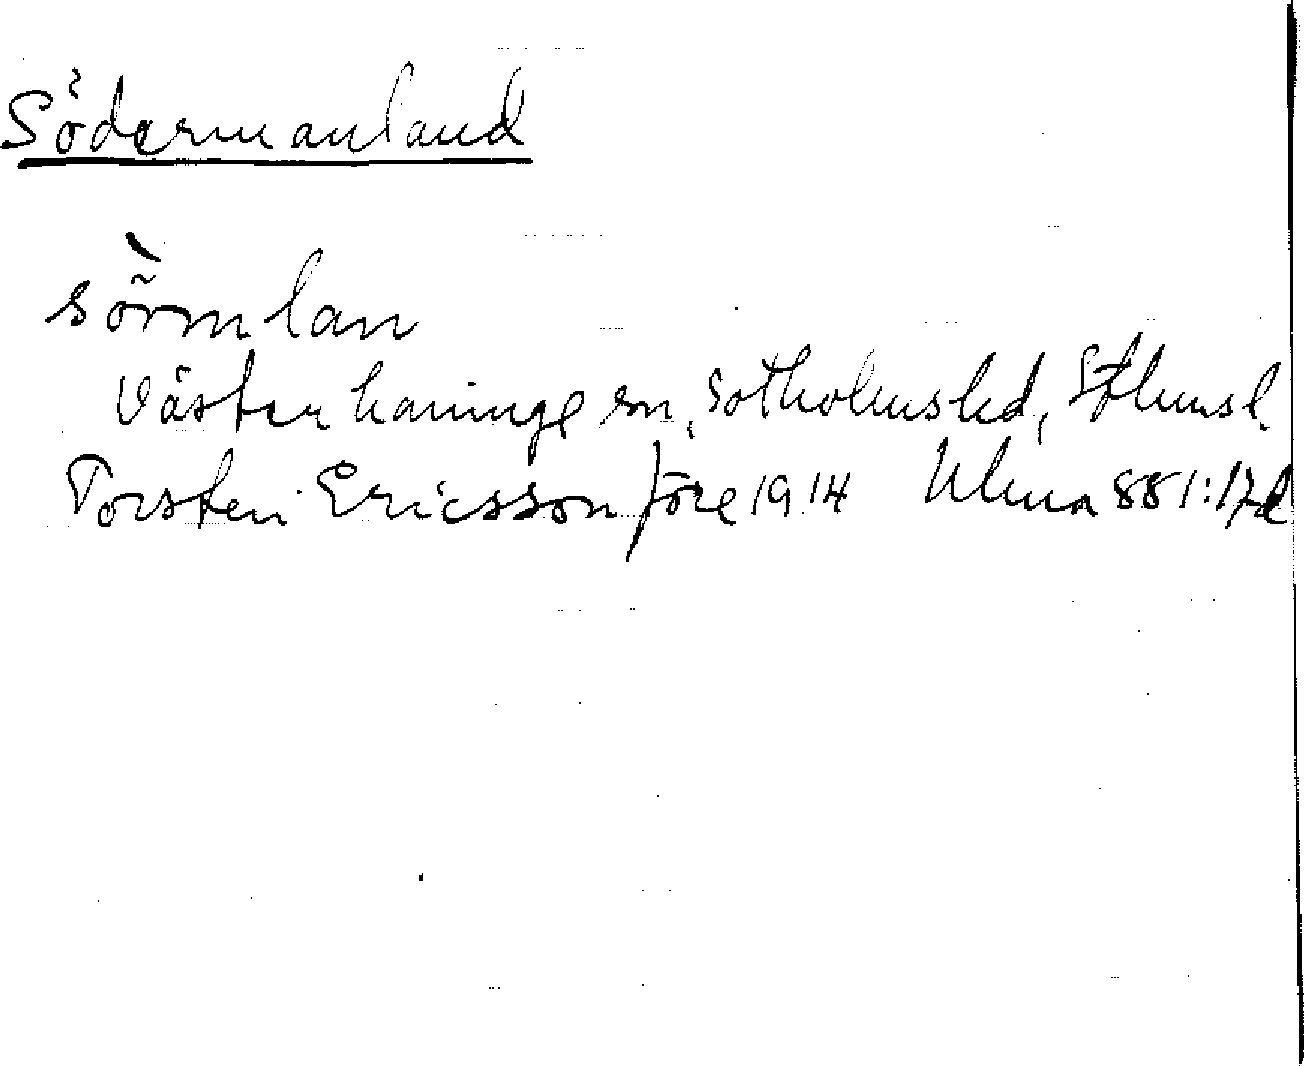 Södermanland
sö̀rmlan
Västerhaninge sn, Sotholms hd, Sthmsl.
Torsten Ericsson före 1914 Ulma 881:17d